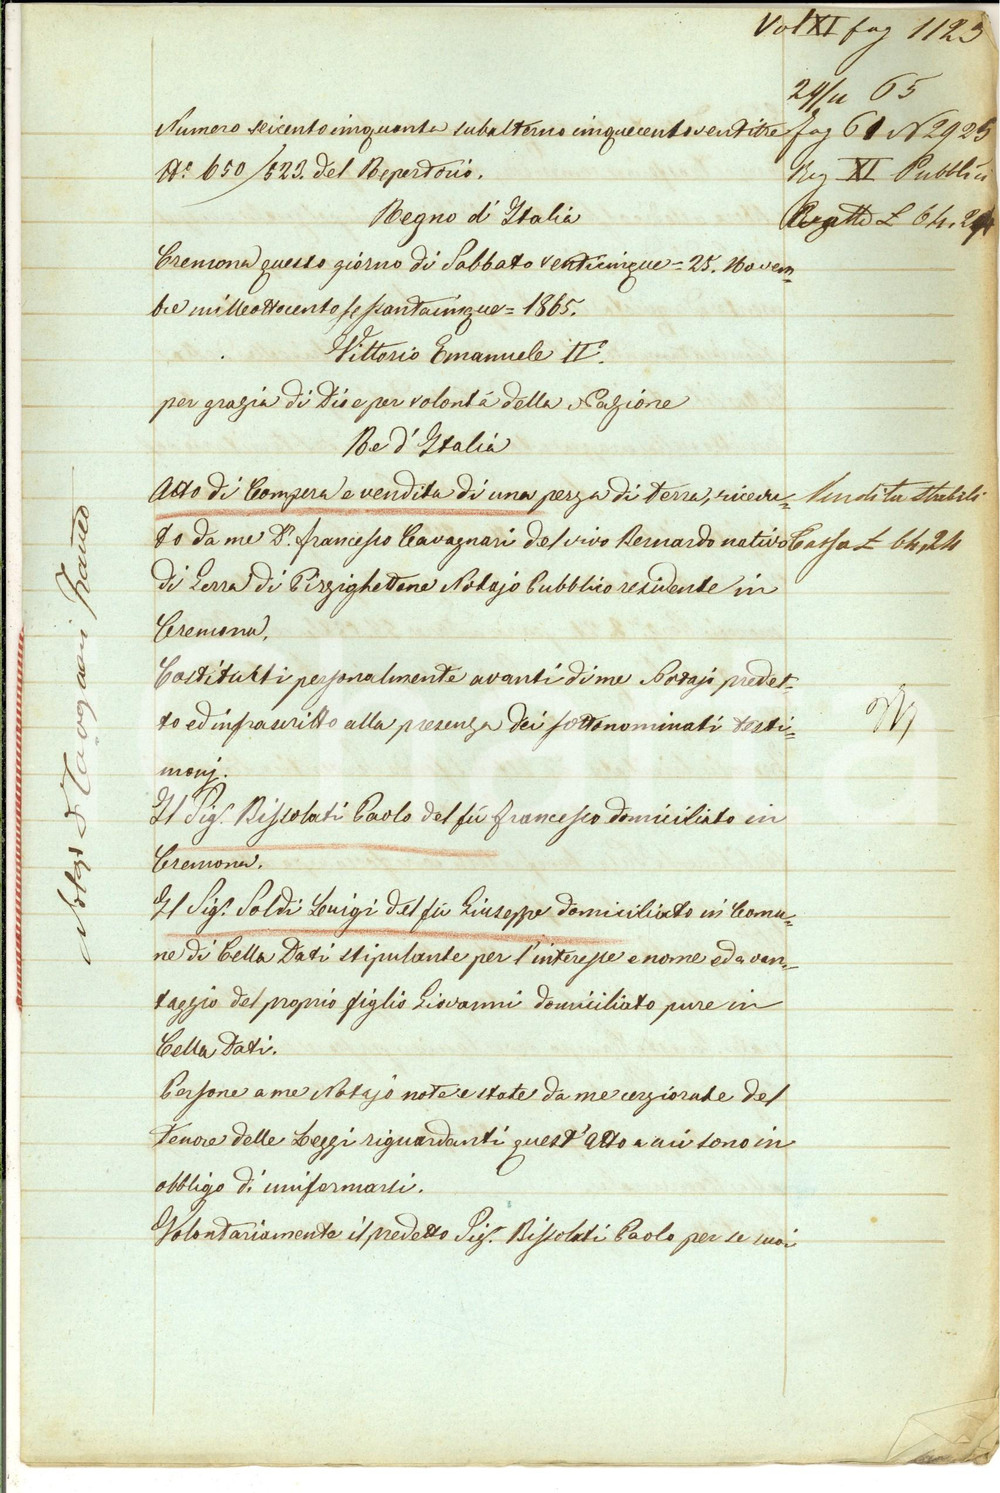 Vol XI fag 1123
24/11 65
Numero seicentocinquanta subalterno cinquecentoventitre fag 61 N 2925
N.° 650/523. del Repertorio. Reg XI Pubblici
Regno d'Italia L 64.24
Cremona questo giorno di Sabbato venticinque = 25. Novem=
bre milleottocento sessantacinque = 1865.
Vittorio Emanuele II°.
per grazia di Dio e per volontà della Nazione
Re d'Italia
Atto di Compera e vendita di una pezza di terra, ricevu= Vendita Stabili
to da me D.r Francesco Cavagnari del vivo Bernardo nativo Tassa L 64,24
di Gerra di Pizzighettone Notajo Pubblico residente in
Cremona.
Costituiti personalmente avanti di me Notajo predet=
to ed infrascritto alla presenza dei sottonominati testi=
monj.
Il Sig.r Bissolati Paolo del fù Francesco domiciliato in
Cremona.
Il Sig.r Soldi Luigi del fù Giuseppe domiciliato in Comu=
ne di Cella Dati stipulante per l'interesse e nome ed a van=
taggio del proprio figlio Giovanni domiciliato pure in
Cella Dati.
Persone a me Notajo note e state da me cerziorate del
tenore delle Leggi riguardanti quest'Atto a cui sono in
obbligo di uniformarsi.
Volontariamente il predetto Sig.r Bissolati Paolo per se suoi
Cavagnari Franco